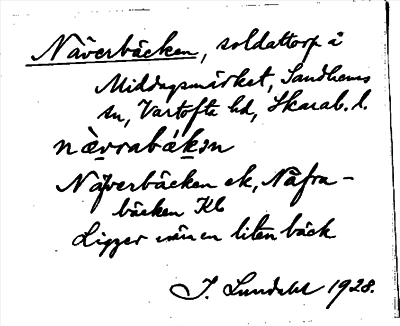 Näverbäcken, soldattorp å
Middagsmärket, Sandhems
sn, Vartofta hd, Skarab. l.
nὲvrabäkən
Näfverbäcken ek, Näfra-
bäcken Kb
Ligger vid en liten bäck
J. Lundahl 1928.